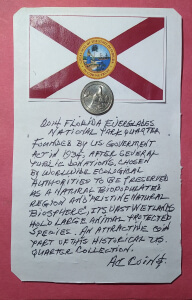 2014 FLORIDA EVERGLADES
NATIONAL PARK QUARTER
FOUNDED BY US GOVERNMENT
ACT IN 1934, AFTER SEVERAL
PUBLIC DONATIONS, CHOSEN
BY WORLDWIDE ECOLOGICAL
AUTHORITIES TO BE PRESERVED
AS A NATURAL BIOPROPUERTED
REGION AND "PRISTINE NATURAL
BIOSPHERE", ITS VAST WETLANDS
HOLD LARGE ANIMAL PROTECTED
SPECIES. AN ATTRACTIVE COIN
PART OF THIS HISTORICAL U.S.
QUARTER COLLECTION.
AZ COIN$